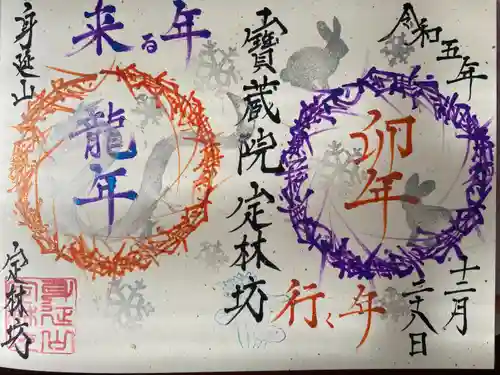 令和五年
卯年
行く年
十二月
二十八日
宝寳蔵院定林坊
来る年
龍年
身延山
定林坊
身延山
定林坊